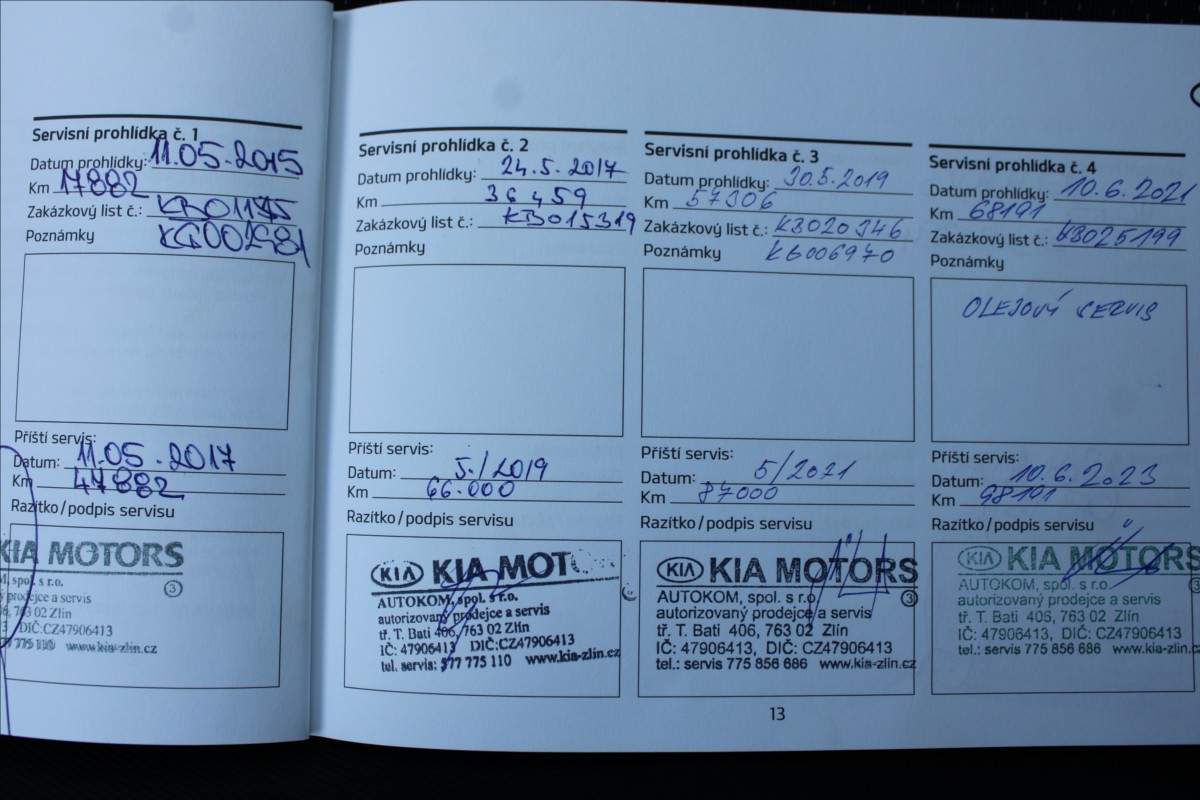 Servisní prohlídka č. 1
Datum prohlídky: 11.05.2015
Km 17882
Zakázkový list č.:
Poznámky
Příští servis:
Datum: 11.05.2017
Km 47882
Razítko/podpis servisu
KIA MOTORS
spol. s r.o.
3
prodejce a servis
763 02 Zlín
DIČ:CZ47906413
775 110 www.kia-zlin.cz
Servisní prohlídka č. 2
Datum prohlídky: 24.5.2017
Km 36459
Zakázkový list č.: KB015319
Poznámky
Příští servis:
Datum: 5./2019
Km 66.000
Razítko/podpis servisu
KIA KIA MOT
AUTOKOM, spol. s r.o.
autorizovaný prodejce a servis
tř. T. Bati 406, 763 02 Zlín
IČ: 47906413 DIČ:CZ47906413
tel. servis: 577 775 110 www.kia-zlin.cz
Servisní prohlídka č. 3
Datum prohlídky: 30.5.2019
Km 57306
Zakázkový list č.: KB020346
Poznámky KG006970
Příští servis:
Datum: 5/2021
Km 87000
Razítko/podpis servisu
KIA KIA MOTORS
AUTOKOM, spol. s r.o. 3
autorizovaný prodejce a servis
tř. T. Bati 406, 763 02 Zlín
IČ: 47906413, DIČ: CZ47906413
tel.: servis 775 856 686 www.kia-zlin.cz
Servisní prohlídka č. 4
Datum prohlídky: 10.6.2021
Km 68191
Zakázkový list č.: KB025199
Poznámky
OLEJOVÝ SERVIS
Příští servis:
Datum: 10.6.2023
Km 98191
Razítko/podpis servisu
KIA KIA MOTORS
AUTOKOM, spol. s r.o. 3
autorizovaný prodejce a servis
tř. T. Bati 406, 763 02 Zlín
IČ: 47906413, DIČ: CZ47906413
tel.: servis 775 856 686 www.kia-zlin.cz
13